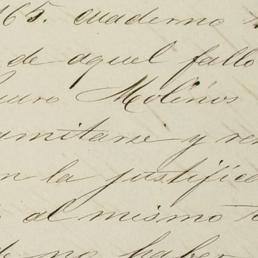 165. cuaderno
de aquel fallo
Molinos
amitarse y
la justific
al mismo
de no haber